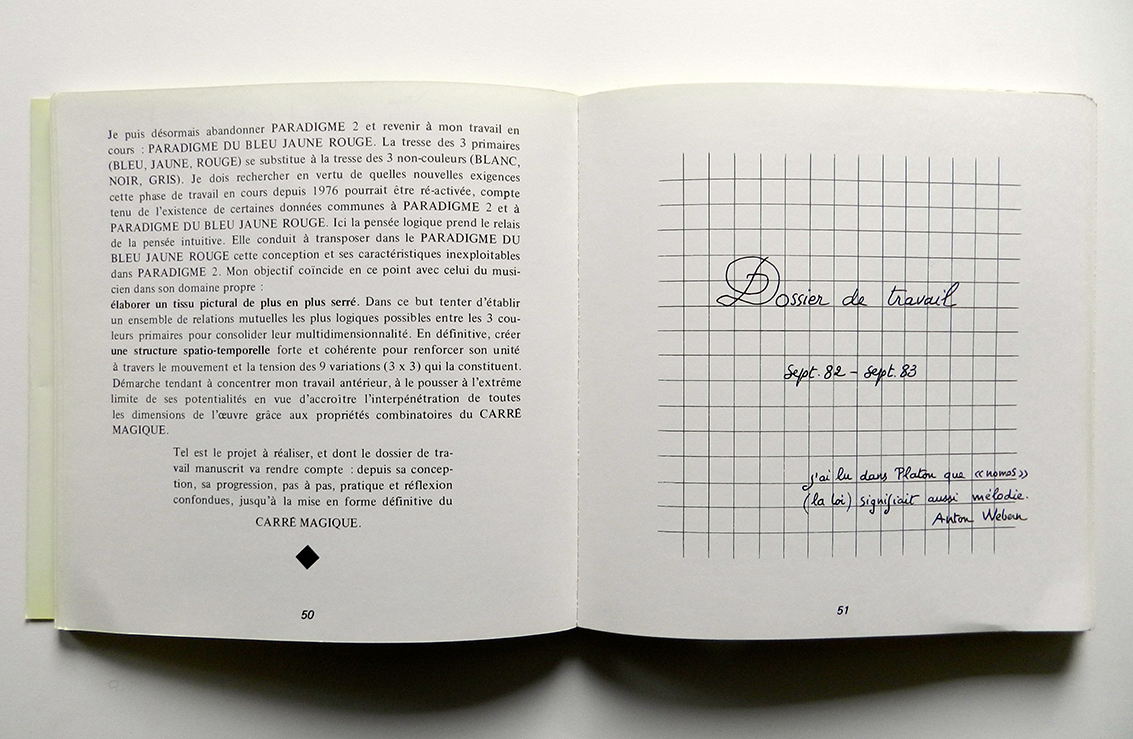 Je puis désormais abandonner PARADIGME 2 et revenir à mon travail en
cours : PARADIGME DU BLEU JAUNE ROUGE. La tresse des 3 primaires
(BLEU, JAUNE, ROUGE) se substitue à la tresse des 3 non-couleurs (BLANC,
NOIR, GRIS). Je dois rechercher en vertu de quelles nouvelles exigences
cette phase de travail en cours depuis 1976 pourrait être ré-activée, compte
tenu de l'existence de certaines données communes à PARADIGME 2 et à
PARADIGME DU BLEU JAUNE ROUGE. Ici la pensée logique prend le relais
de la pensée intuitive. Elle conduit à transposer dans le PARADIGME DU
BLEU JAUNE ROUGE cette conception et ses caractéristiques inexploitables
dans PARADIGME 2. Mon objectif coïncide en ce point avec celui du musi-
cien dans son domaine propre :
élaborer un tissu pictural de plus en plus serré. Dans ce but tenter d'établir
un ensemble de relations mutuelles les plus logiques possibles entre les 3 cou-
leurs primaires pour consolider leur multidimensionnalité. En définitive, créer
une structure spatio-temporelle forte et cohérente pour renforcer son unité
à travers le mouvement et la tension des 9 variations (3 x 3) qui la constituent.
Démarche tendant à concentrer mon travail antérieur, à le pousser à l'extrême
limite de ses potentialités en vue d'accroître l'interpénétration de toutes
les dimensions de l'œuvre grâce aux propriétés combinatoires du CARRÉ
MAGIQUE.
Tel est le projet à réaliser, et dont le dossier de tra-
vail manuscrit va rendre compte : depuis sa concep-
tion, sa progression, pas à pas, pratique et réflexion
confondues, jusqu'à la mise en forme définitive du
CARRÉ MAGIQUE.
50
Dossier de travail
Sept. 82 – sept. 83
j'ai lu dans Platon que «nomos»
(la loi) signifiait aussi mélodie.
Anton Webern
51